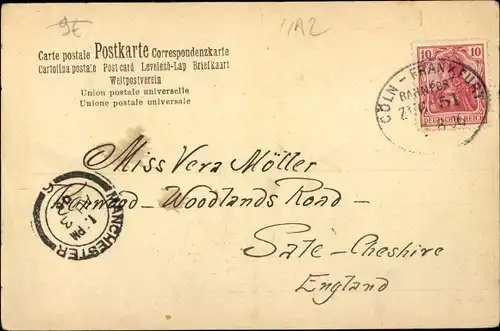 9E
11A2
Carte postale Postkarte Correspondenzkarte
Cartolina postale Post card Levelező-Lap Briefkaart
Weltpostverein
Union postale universelle
Unione postale universale
10 10
DEUTSCHES REICH
CÖLN - FRANKFURT
BAHNPOST
ZUG 51
Miss Vera Möller
Woodlands Road -
Sale - Cheshire
England
MANCHESTER
PM